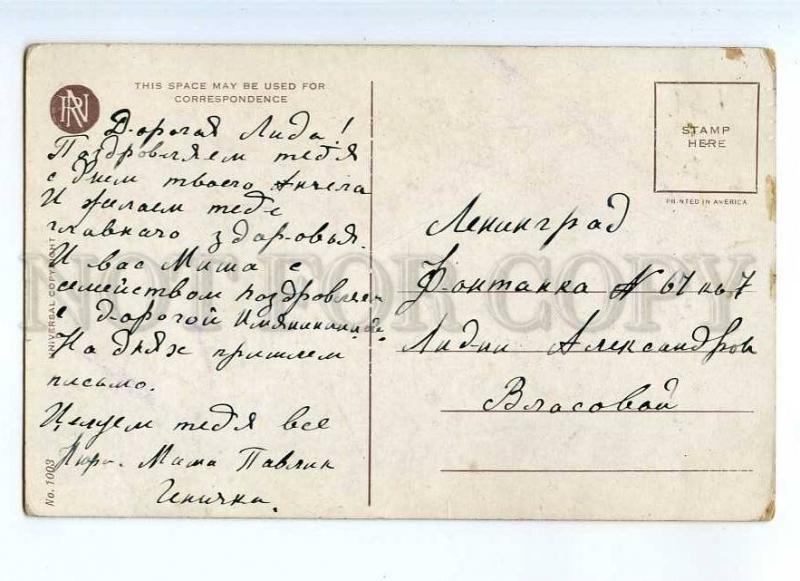 RN
THIS SPACE MAY BE USED FOR
CORRESPONDENCE
Дорогая Лида!
Поздровляем тебя
с днем твоего Ангела
И желаем тебе
главнаго здоровья.
И вас Миша с
семейством поздровляем
с дорогой Имянинницей.
На днях пришлем
письмо.
Целуем тебя все
Миша Павлик
Геничка.
UNIVERSAL COPYRIGHT
No. 1003
STAMP
HERE
PRINTED IN AMERICA
Ленинград
Фонтанка N 64 кв 7
Лидии Александров
Власовой
NOT FOR COPY